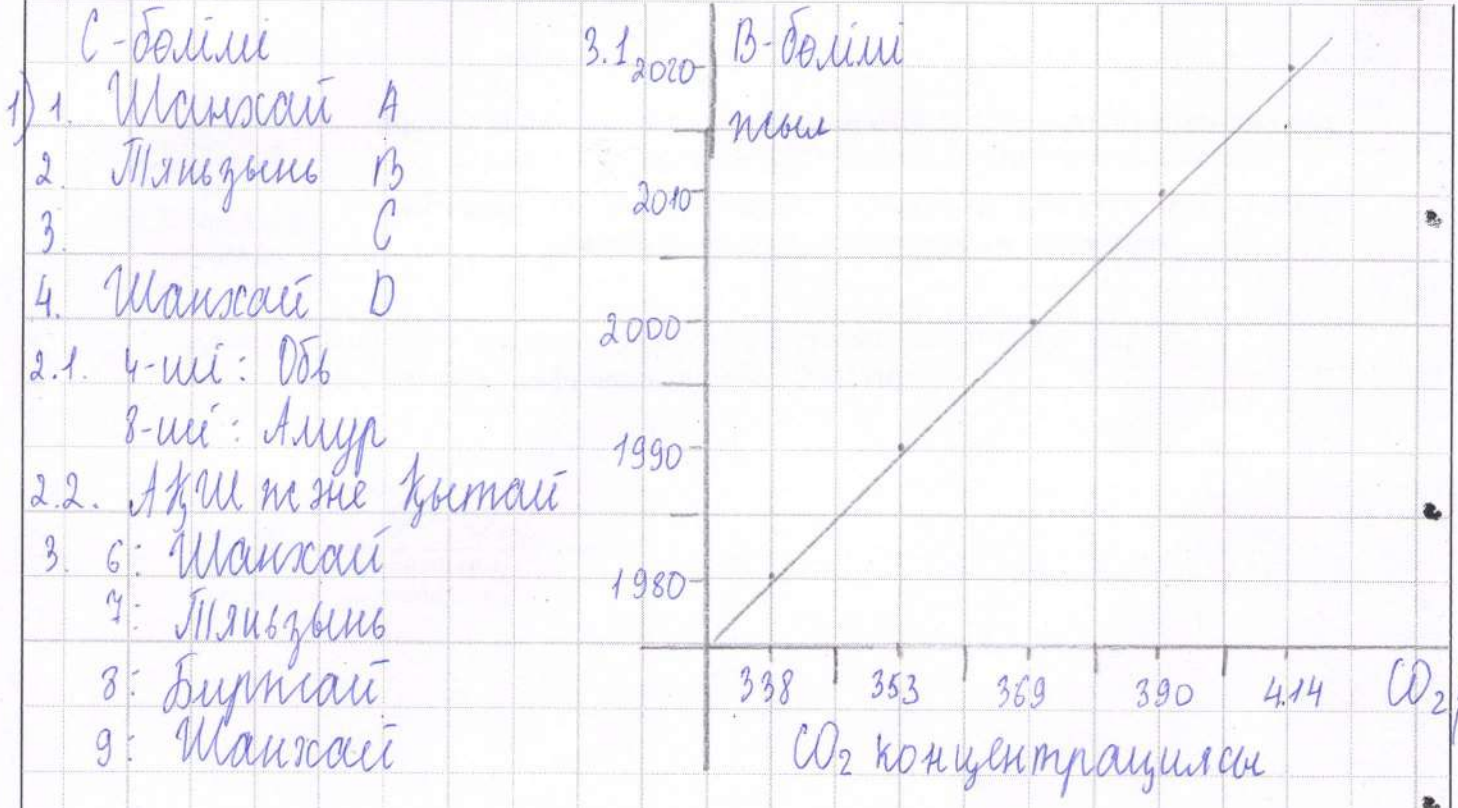 С-бөлімі
1) 1. Шанхай А
2. Тяньзынь В
3. С
4. Шанхай D
2.1. 4-ші: Обь
8-ші: Амур
2.2. АҚШ және Қытай
3. 6: Шанхай
7: Тяньзынь
8: Биржай
9: Шанхай
3.1 В-бөлімі
жыл
2020
2010
2000
1990
1980
338 353 369 390 4.14 CO₂
CO₂ концентрациясы